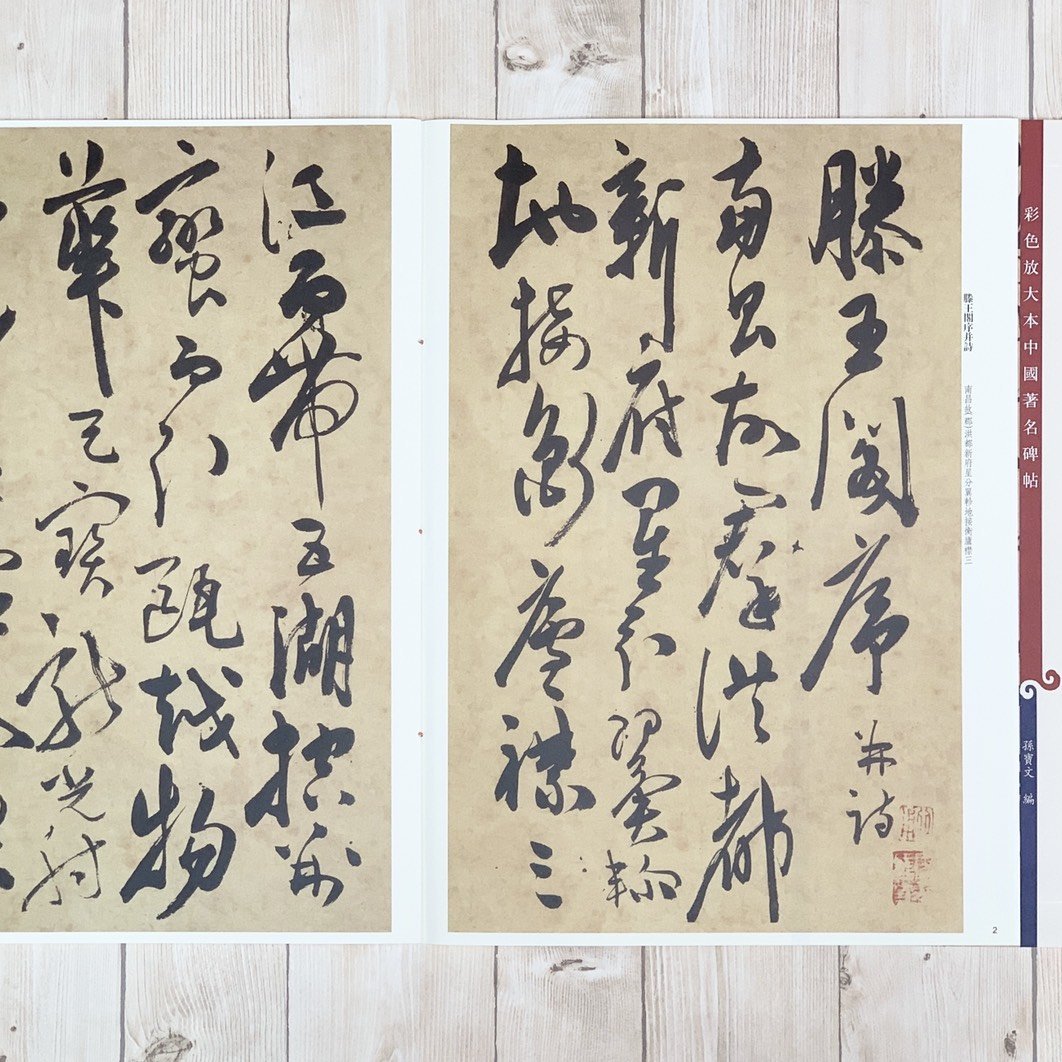 彩色放大本中國著名碑帖
孫寶文 編
滕王閣序并詩
南昌故(郡)洪都新府星分翼軫地接衡廬襟三
滕王閣序 并詩
南昌故羣洪都
新府星分翼軫
地接衡廬襟三
2
江而帶五湖控荊
蠻而引甌越物
華天寶龍光射